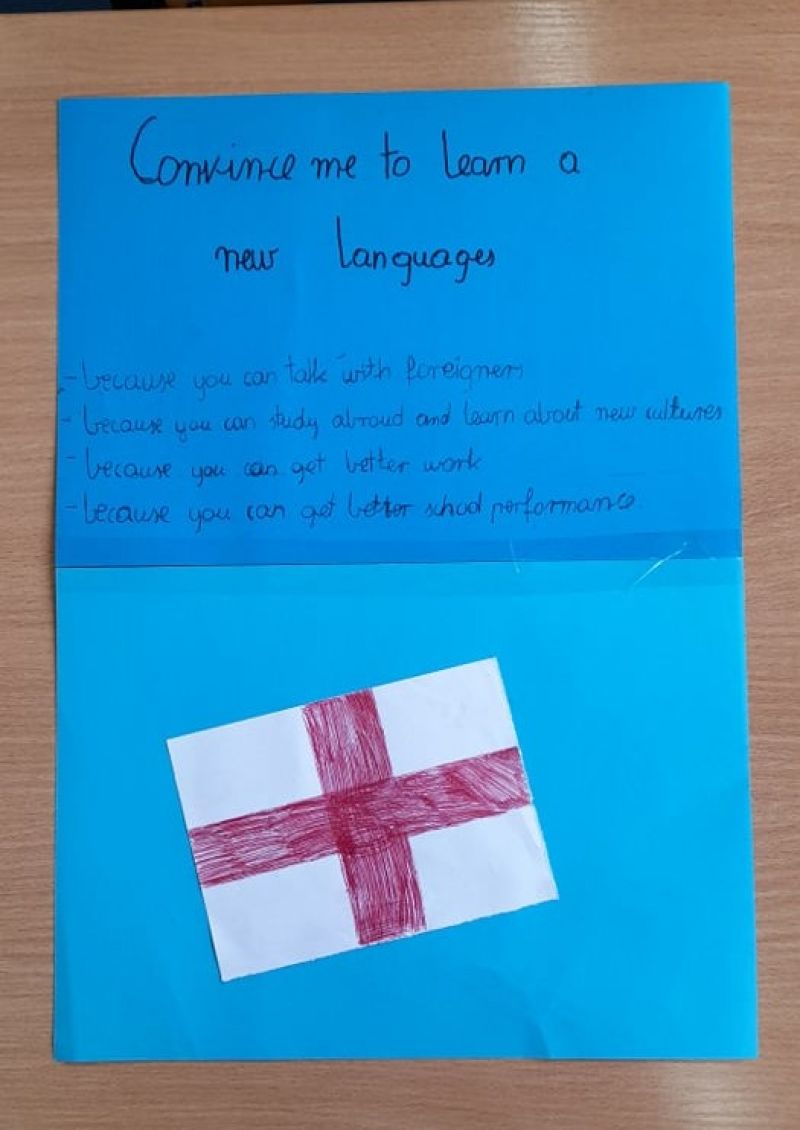 Convince me to learn a
new languages
- because you can talk with foreigners
- because you can study abroud and learn about new cultures
- because you can get better work
- because you can get better school performance